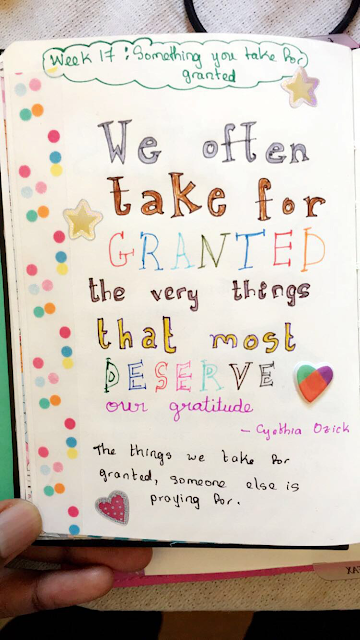 Week 17 : Something you take for
granted
We often
take for
GRANTED
the very things
that most
DESERVE
our gratitude
- Cynthia Ozick
The things we take for
granted, someone else is
praying for.